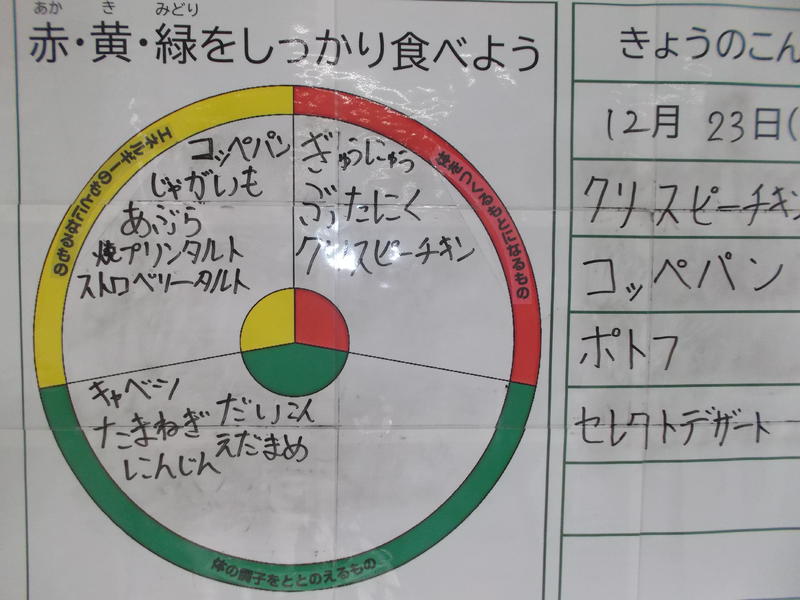 あか き みどり
赤・黄・緑をしっかり食べよう
エネルギーのもとになるもの
コッペパン
じゃがいも
あぶら
焼プリンタルト
ストロベリータルト
体をつくるもとになるもの
ぎゅうにゅう
ぶたにく
クリスピーチキン
キャベツ
たまねぎ
にんじん
だいこん
えだまめ
体の調子をととのえるもの
きょうのこん
12月 23日(
クリスピーチキン
コッペパン
ポトフ
セレクトデザート